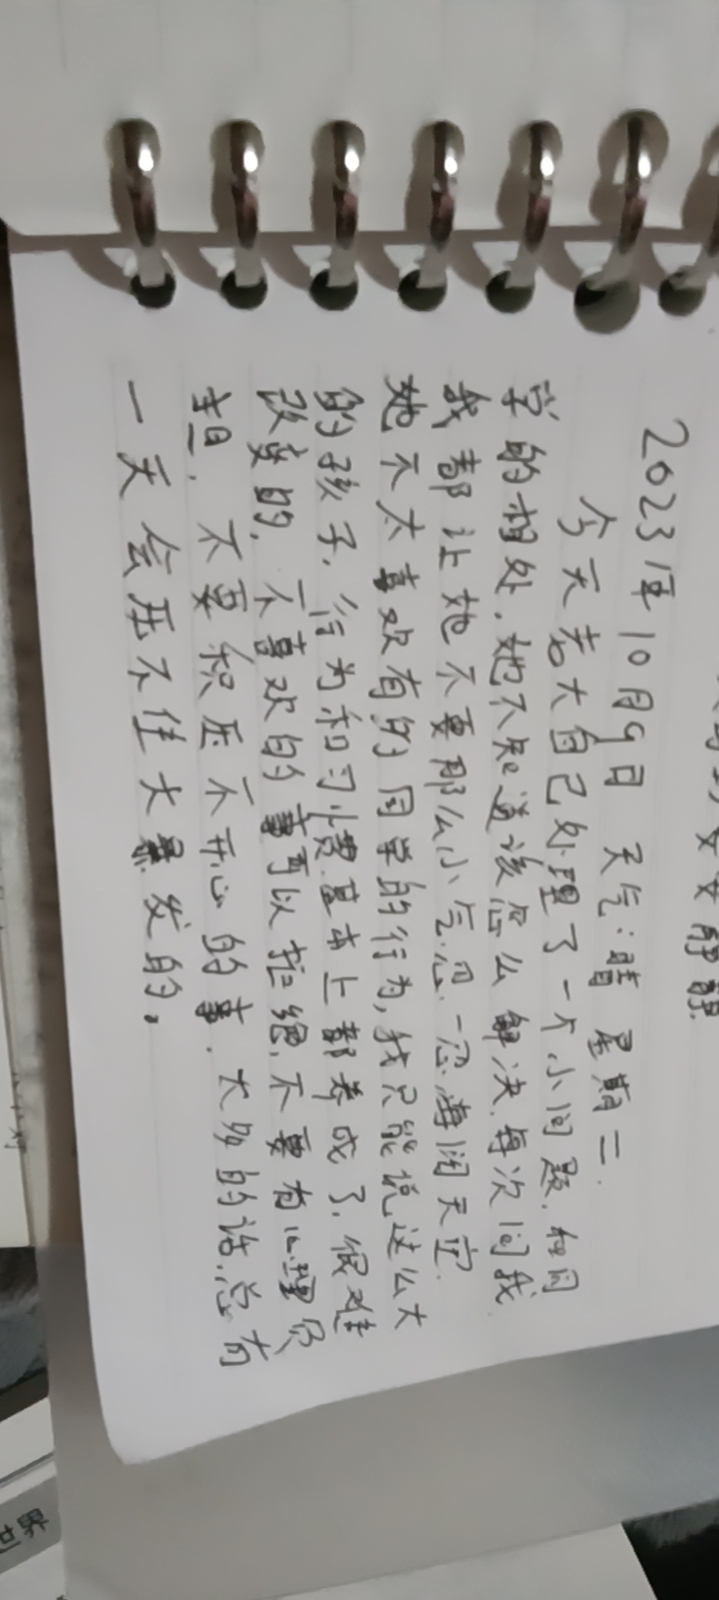 2023年10月9日 天气:晴 星期二.
今天老大自己处理了一个小问题.和同
学的相处.她不知道该怎么解决.每次问我
我都让她不要那么小气.忍一忍海阔天空.
她不太喜欢有的同学的行为,我只能说这么大
的孩子.行为和习惯基本上都养成了.很难
改变的.不喜欢的事可以拒绝.不要有心理负
担.不要积压不开心的事.太多的话.总有
一天会压不住大暴发的。
世界